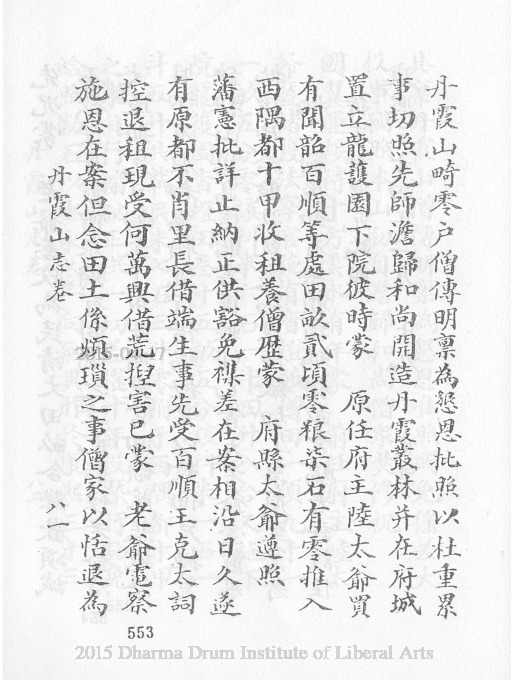 丹霞山畸零户僧傳明禀為懇恩批照以杜重累
事切照先師澹歸和尚開造丹霞叢林并在府城
置立龍護園下院彼時蒙　原任府主陸太爺買
有聞韶百順等處田畝貳頃零粮柒石有零推入
西隅都十甲收租養僧歴蒙　府縣太爺遵照
藩憲批詳止納正供豁免襍差在案相沿日久遂
有原都不肖里長借端生事先受百順王克太詞
控退租現受何萬興借荒揑害已蒙　老爺電察
施恩在案但念田土係煩瑣之事僧家以恬退為
丹霞山志卷　八一
553
2015 Dharma Drum Institute of Liberal Arts